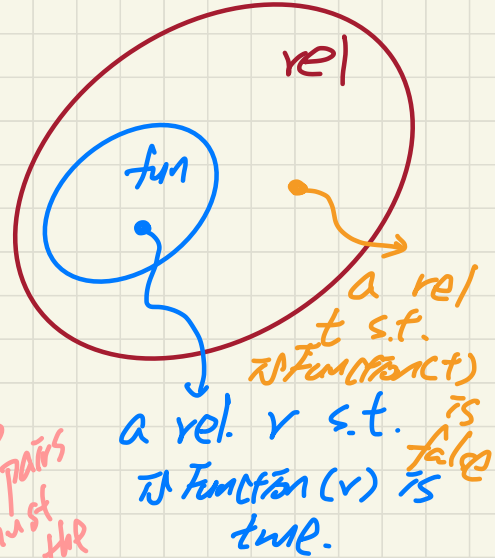 rel
fun
a rel
t s.t.
isFunction(t)
is
false
a rel. r s.t.
isFunction(r) is
true.
pairs
the